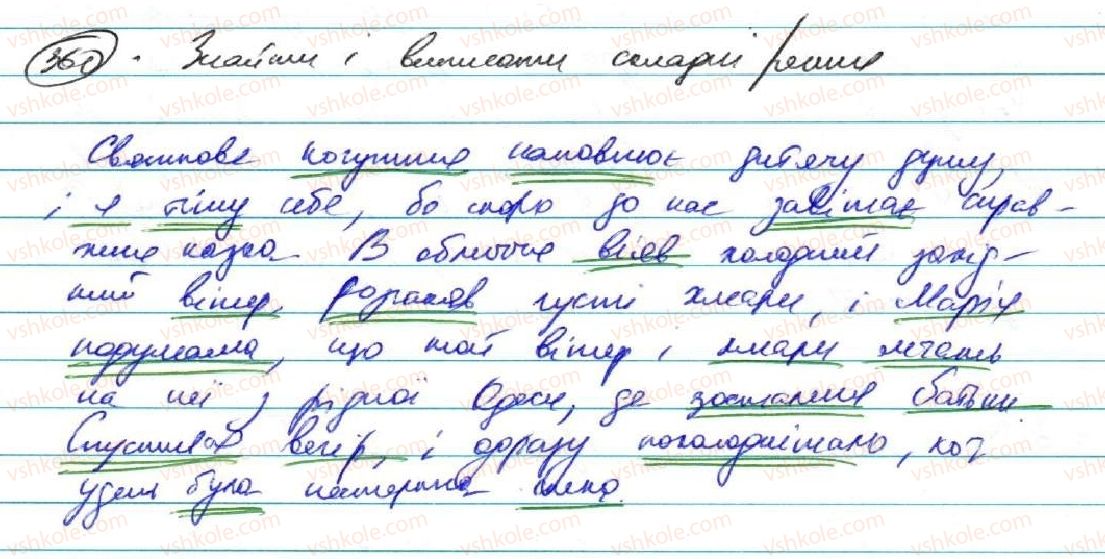 360. Знайти і виписати складні речення
Святкове почуття наповнює дитячу душу,
і я тішу себе, бо скоро до нас завітає справ-
жня казка. В обличчя віяв холодний захід-
ний вітер, розганяв густі хмари, і Марія
подумала, що той вітер і хмари летять
на неї з рідної Одеси, де зосталися батьки
Спустився вечір, і одразу похолоднішало, хоч
удень була нестерпна спека.